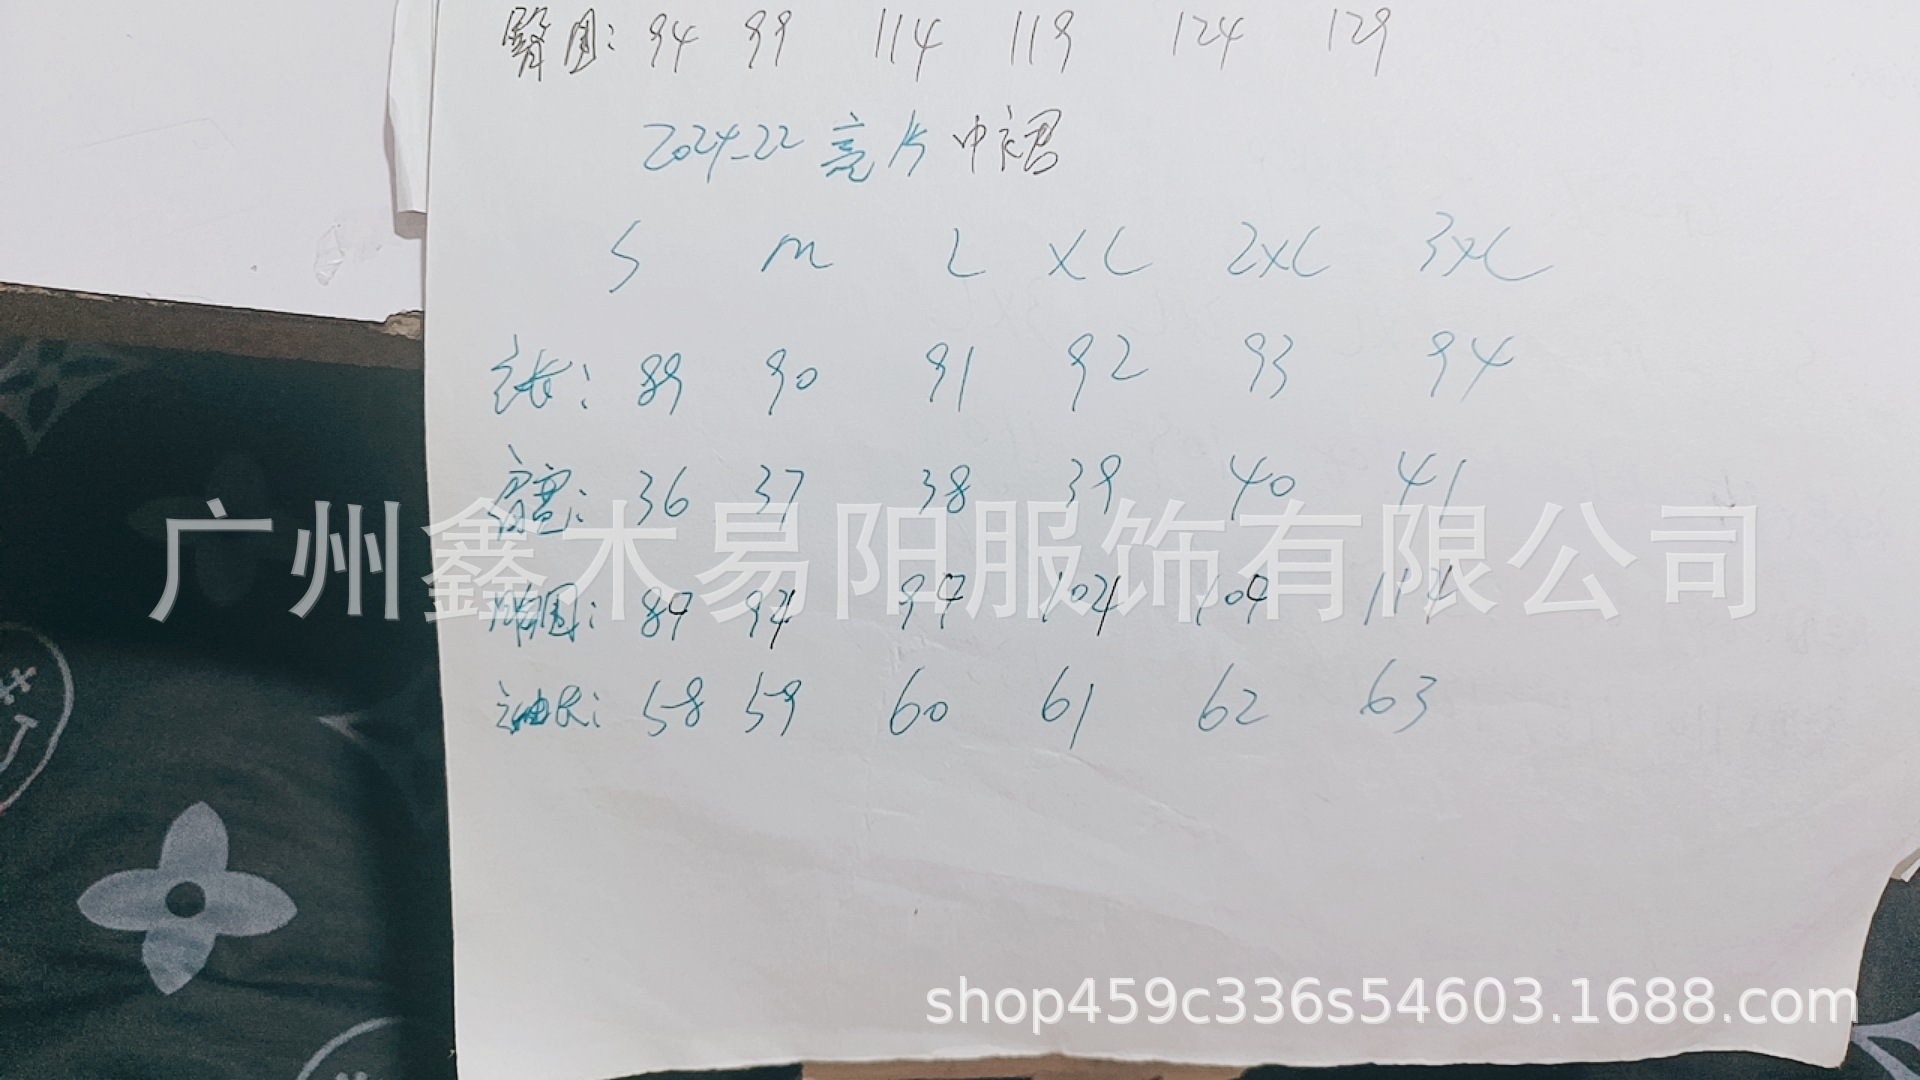 臀围: 94 99 114 119 124 129
2024-22 亮片中裙
S M L XL 2XL 3XL
衣长: 89 90 91 92 93 94
肩宽: 36 37 38 39 40 41
胸围: 89 94 99 104 109 114
袖长: 58 59 60 61 62 63
广州鑫木易阳服饰有限公司
shop459c336s54603.1688.com